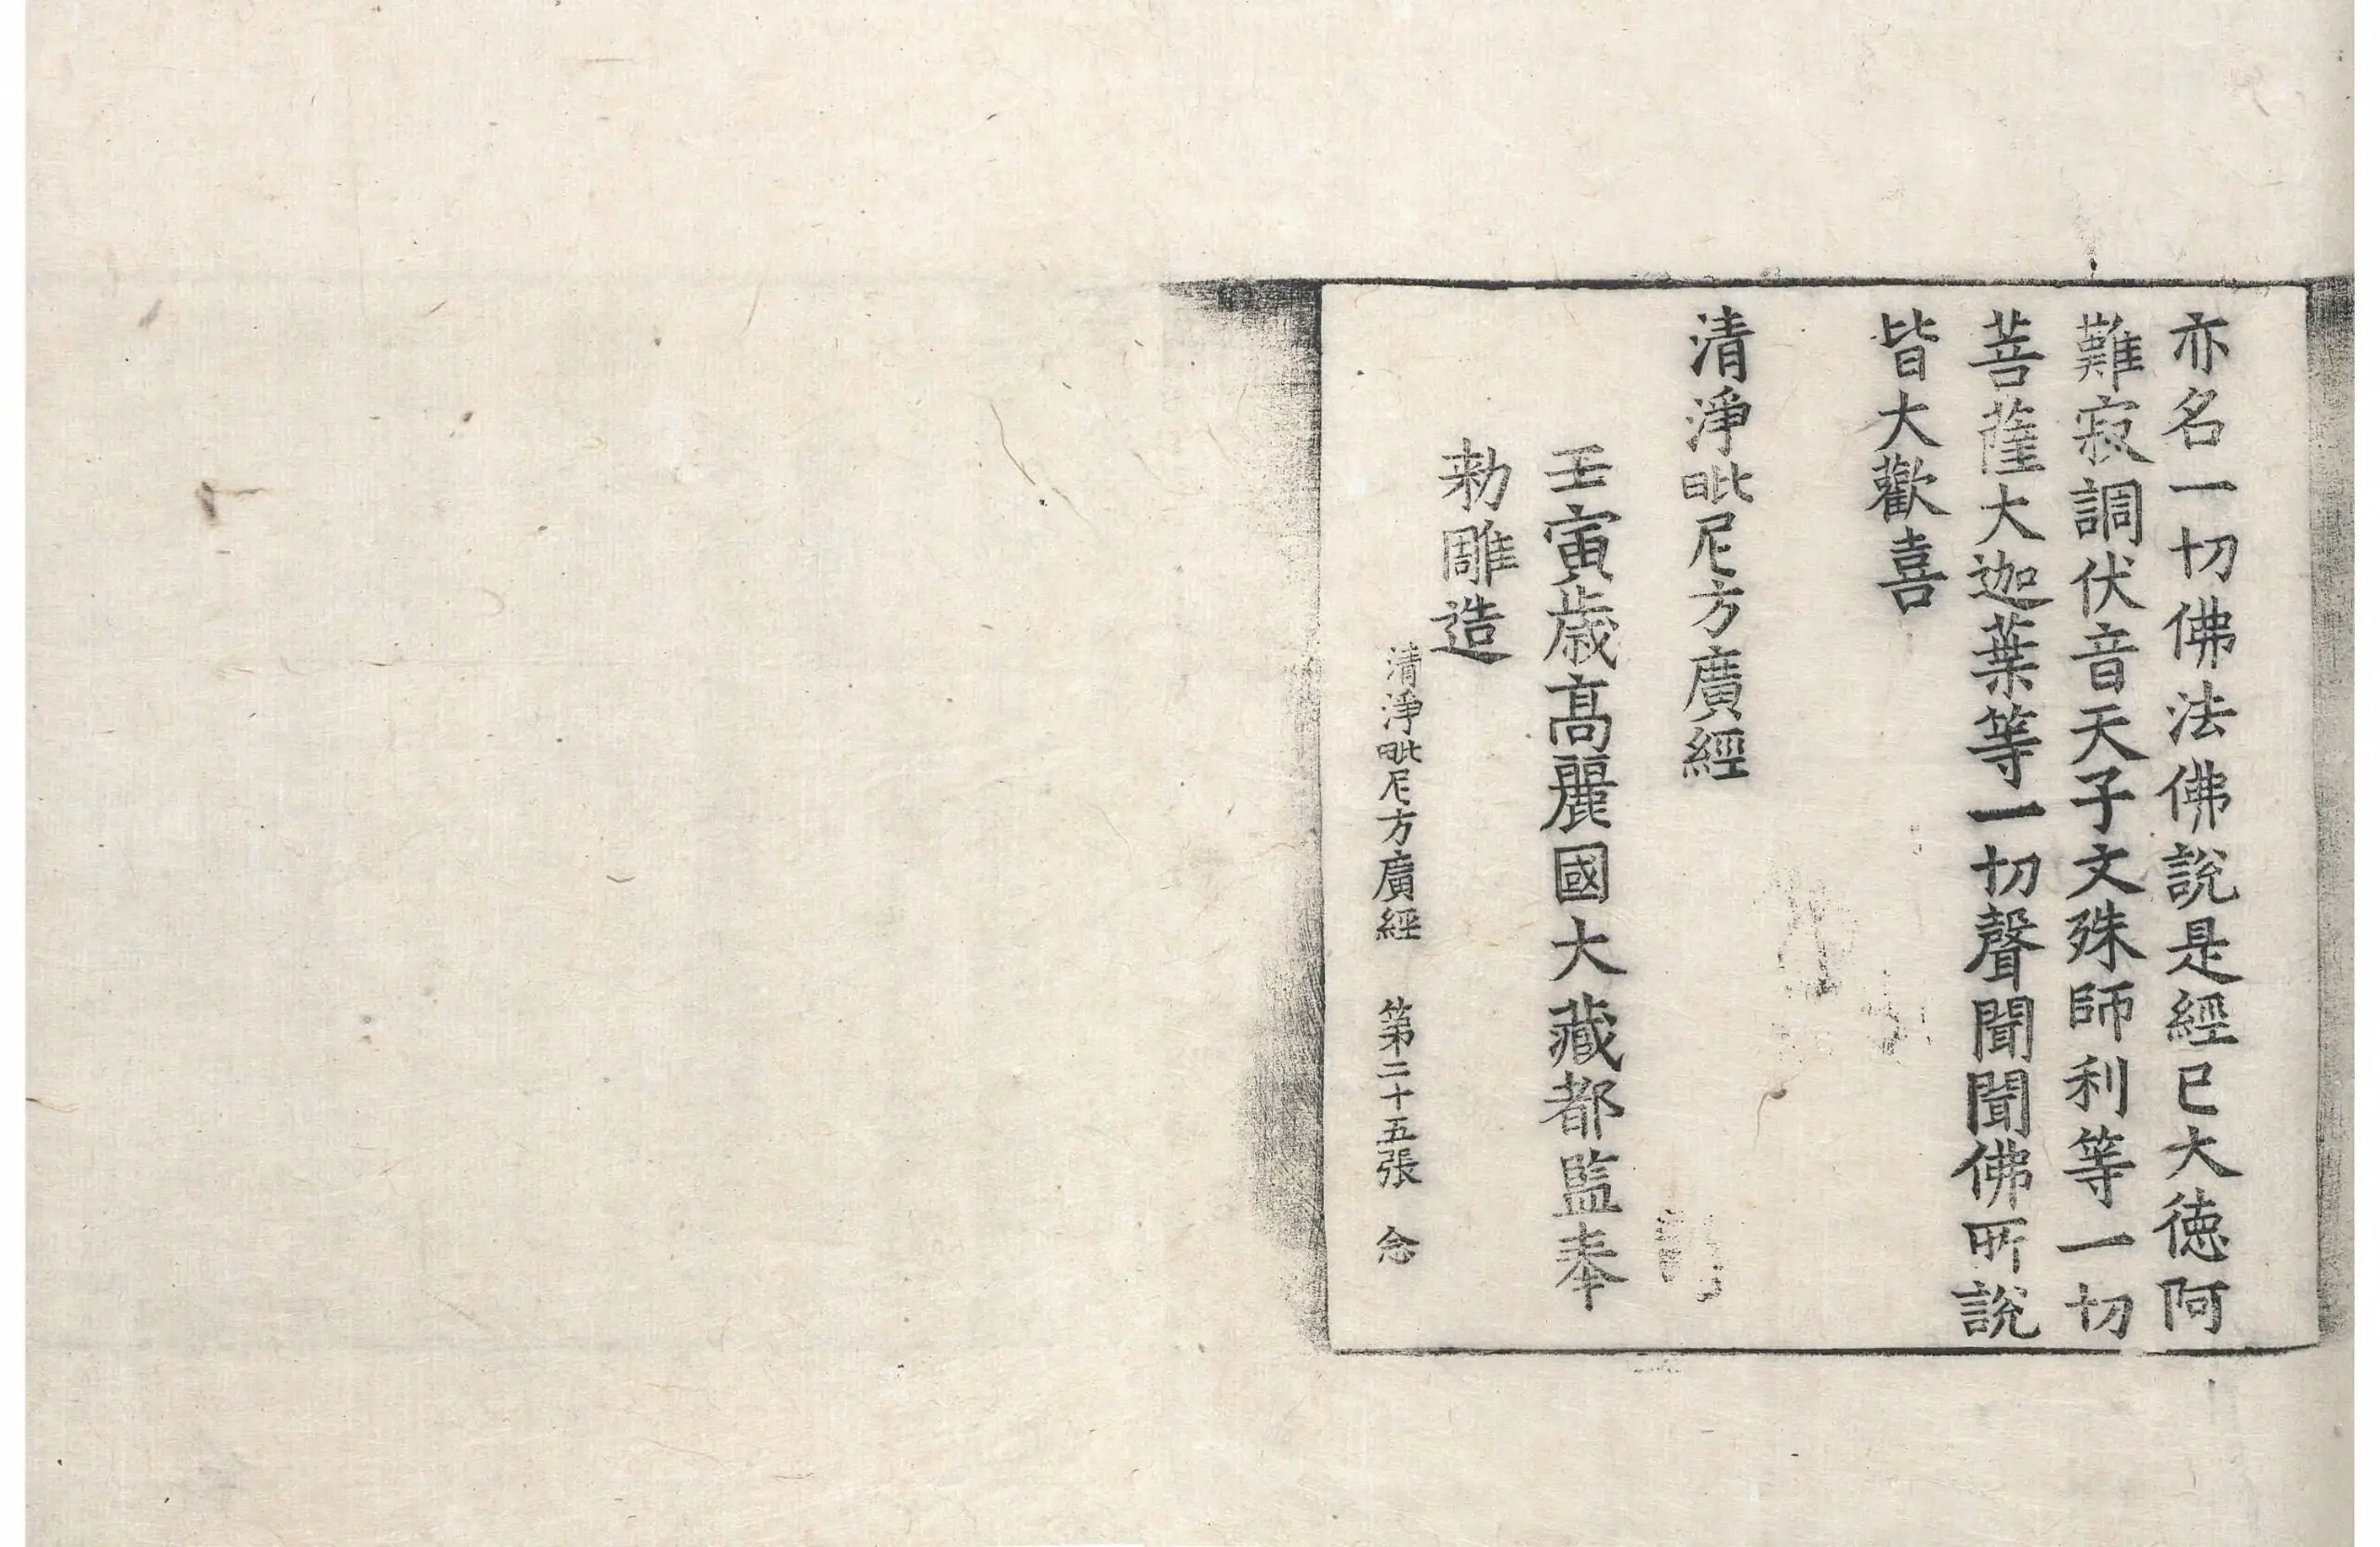 亦名一切佛法佛說是經已大徳阿
難㝡調伏音天子文殊師利等一切
菩薩大迦葉等一切聲聞聞佛所說
皆大歡喜
清淨毗尼方廣經
壬寅歳高麗國大藏都監奉
勑雕造
清淨毗尼方廣經　第二十五張　念